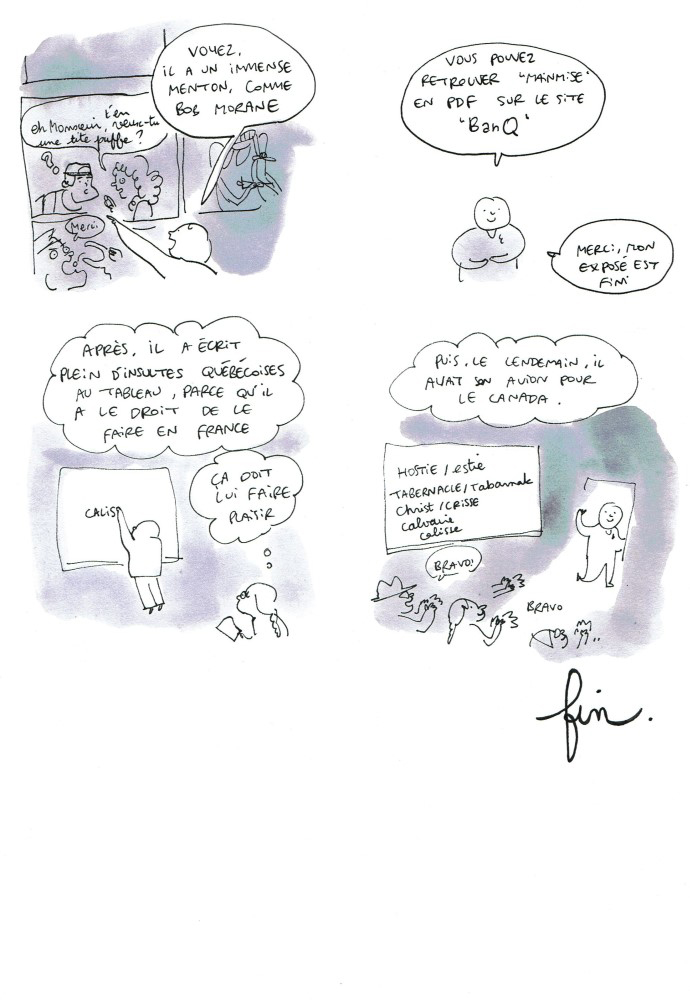 VOYEZ,
IL A UN IMMENSE
MENTON, COMME
BOB MORANE
t'en
eh Monsieur, veux-tu
une tite puffe?
???
Merci
VOUS POUVEZ
RETROUVER "MAINMISE"
EN PDF SUR LE SITE
"BanQ"
MERCI, MON
EXPOSÉ EST
FINI
APRÈS, IL A ÉCRIT
PLEIN D'INSULTES QUÉBÉCOISES
AU TABLEAU, PARCE QU'IL
A LE DROIT DE LE
FAIRE EN FRANCE
ÇA DOIT
LUI FAIRE
PLAISIR
CALISS
PUIS, LE LENDEMAIN, IL
AVAIT SON AVION POUR
LE CANADA.
HOSTIE / estie
TABERNACLE / Tabarnak
Christ / CRISSE
calvaire
calisse
BRAVO!
BRAVO
fin.